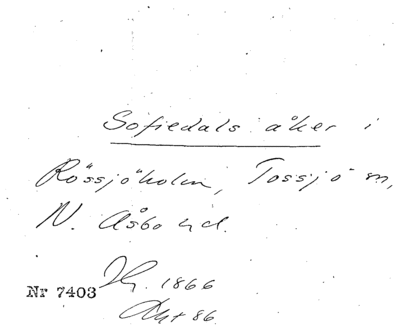 Sofiedals åker i
Rössjöholm, Tossjö sn,
N. Åsbo hd.
1866
Nr 7403
Akt 86